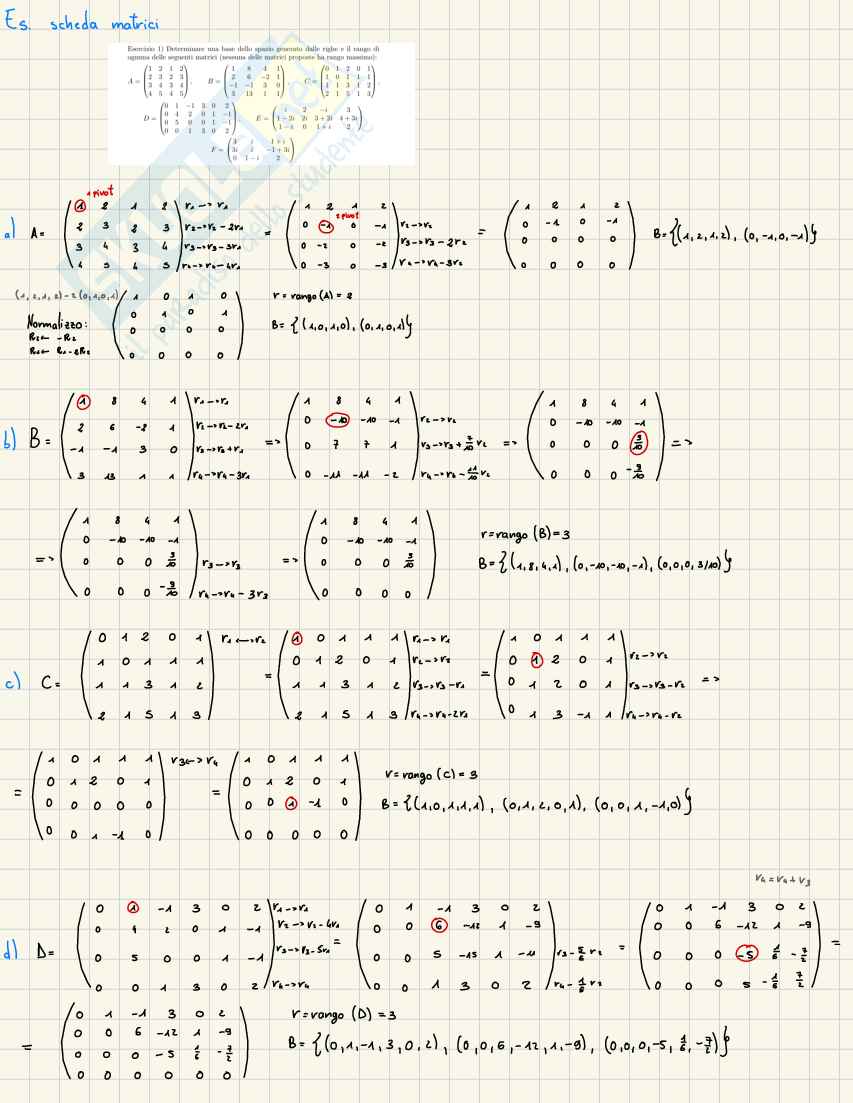 Es. scheda matrici
Esercizio 1) Determinare una base dello spazio generato dalle righe e il rango di
ognuna delle seguenti matrici (nessuna delle matrici proposte ha rango massimo):
A = (1 2 1 2; 2 3 2 3; 3 4 3 4; 4 5 4 5), B = (1 8 4 1; 2 6 -2 1; -1 -1 3 0; 3 13 1 1), C = (0 1 2 0 1; 1 0 1 1 1; 1 1 3 1 2; 2 1 5 1 3),
D = (0 1 -1 3 0 2; 0 4 2 0 1 -1; 0 5 0 0 1 -1; 0 0 1 3 0 2), E = (i 2 -i 3; 1-2i 2i 3+3i 4+3i; 1-i 0 1+i 2)
F = (3 i 1+i; 3i i -1+3i; 0 1-i 2)
1 pivot
a) A = (1 2 1 2; 2 3 2 3; 3 4 3 4; 4 5 4 5) r1 -> r1 r2->r2-2r1 r3->r3-3r1 r4->r4-4r1 = (1 2 1 2; 0 -1 0 -1; 0 -2 0 -2; 0 -3 0 -3) 2 pivot r2->r2 r3->r3-2r2 r4->r4-3r2 = (1 2 1 2; 0 -1 0 -1; 0 0 0 0; 0 0 0 0) B={(1,2,1,2), (0,-1,0,-1)}
(1,2,1,2)-2(0,1,0,1)
Normalizzo:
R2<- -R2
R1<- R1-2R2
(1 0 1 0; 0 1 0 1; 0 0 0 0; 0 0 0 0)
r = rango(A) = 2
B = {(1,0,1,0), (0,1,0,1)}
b) B = (1 8 4 1; 2 6 -2 1; -1 -1 3 0; 3 13 1 1) r1->r1 r2->r2-2r1 r3->r3+r1 r4->r4-3r1 => (1 8 4 1; 0 -10 -10 -1; 0 7 7 1; 0 -11 -11 -2) r2->r2 r3->r3+7/10 r2 r4->r2-11/10 r2 => (1 8 4 1; 0 -10 -10 -1; 0 0 0 3/10; 0 0 0 -9/10) =>
=> (1 8 4 1; 0 -10 -10 -1; 0 0 0 3/10; 0 0 0 -9/10) r3->r3 r4->r4-3r3 => (1 8 4 1; 0 -10 -10 -1; 0 0 0 3/10; 0 0 0 0)
r=rango (B)=3
B={(1,8,4,1), (0,-10,-10,-1), (0,0,0,3/10)}
c) C = (0 1 2 0 1; 1 0 1 1 1; 1 1 3 1 2; 2 1 5 1 3) r1<->r2 = (1 0 1 1 1; 0 1 2 0 1; 1 1 3 1 2; 2 1 5 1 3) r1->r1 r2->r2 r3->r3-r1 r4->r4-2r1 = (1 0 1 1 1; 0 1 2 0 1; 0 1 2 0 1; 0 1 3 -1 1) r2->r2 r3->r3-r2 r4->r4-r2 =>
= (1 0 1 1 1; 0 1 2 0 1; 0 0 0 0 0; 0 0 1 -1 0) r3<->r4 = (1 0 1 1 1; 0 1 2 0 1; 0 0 1 -1 0; 0 0 0 0 0)
r=rango (C) = 3
B = {(1,0,1,1,1), (0,1,2,0,1), (0,0,1,-1,0)}
r4=r4+r3
d) D = (0 1 -1 3 0 2; 0 4 2 0 1 -1; 0 5 0 0 1 -1; 0 0 1 3 0 2) r1->r1 r2->r2-4r1 r3->r3-5r1 r4->r4 = (0 1 -1 3 0 2; 0 0 6 -12 1 -9; 0 0 5 -15 1 -11; 0 0 1 3 0 2) r3-5/6 r2 r4-1/6 r2 = (0 1 -1 3 0 2; 0 0 6 -12 1 -9; 0 0 0 -5 1/6 -7/2; 0 0 0 5 -1/6 7/2) =
= (0 1 -1 3 0 2; 0 0 6 -12 1 -9; 0 0 0 -5 1/6 -7/2; 0 0 0 0 0 0)
r=rango (D) = 3
B = {(0,1,-1,3,0,2), (0,0,6,-12,1,-9), (0,0,0,-5,1/6,-7/2)}